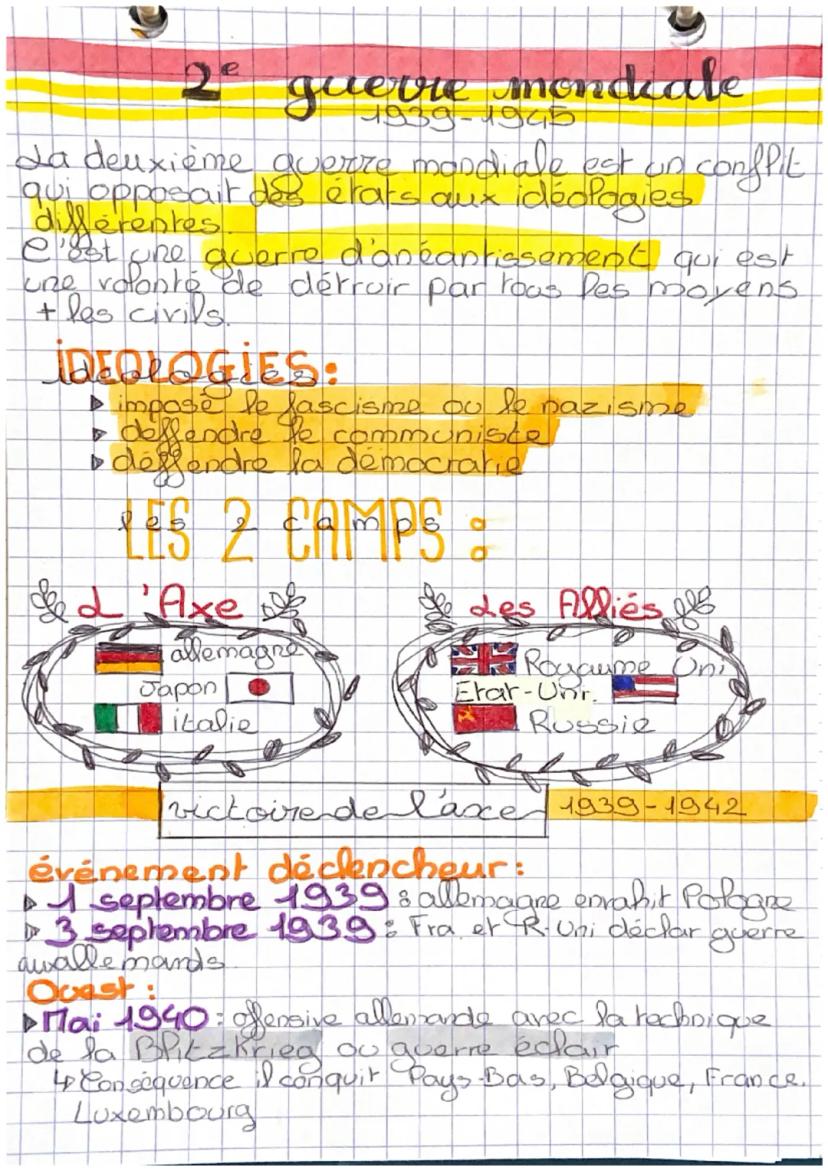 2e guerre mondiale
1939-1945
La deuxième guerre mondiale est un conflit
qui opposait des états aux idéologies
différentes.
C'est une guerre d'anéantissement qui est
une volonté de détruir par tous les moyens
+ les civils.
IDEOLOGIES:
▸ imposé le fascisme ou le nazisme
▸ deffendre le communiste
▸ déffendre la démocratie
LES 2 CAMPS :
L'Axe
Les Alliés
allemagne
Japon
italie
Royaume Uni
Etat-Uni.
Russie
victoire de l'axe 1939-1942
événement déclencheur:
▸ 1 septembre 1939 : allemagne envahit Pologne
▸ 3 septembre 1939 : Fra et R-Uni déclar guerre
aux allemands
Ouest :
▸ Mai 1940 : offensive allemande avec la technique
de la Blitzkrieg ou guerre éclair
↳ Conséquence il conquit Pays-Bas, Belgique, France.
Luxembourg